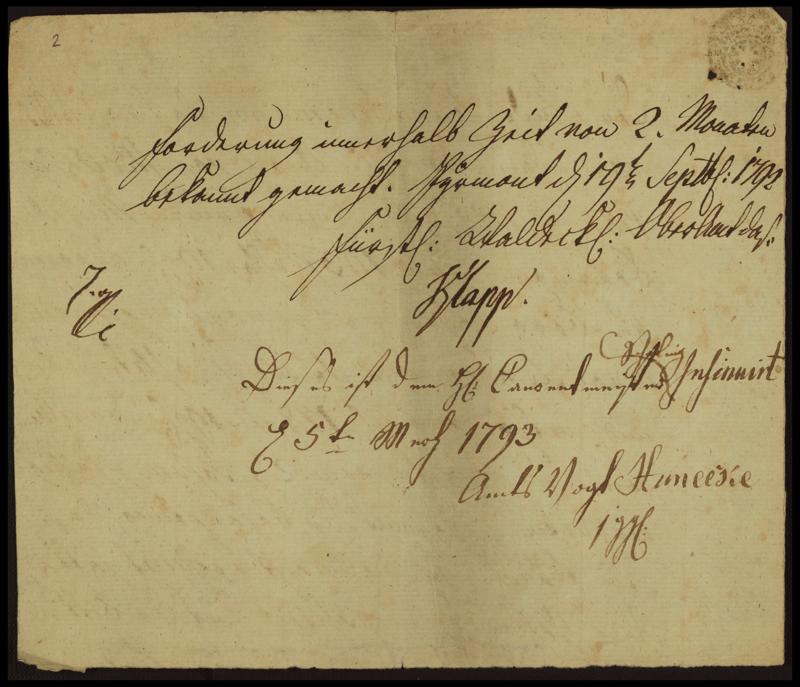 2
Forderung innerhalb Zeit von 2. Monaten
bekannt gemacht. Pyrmont d 19t Septbl: 1792
Fürstl: Waldeckl: OberAmt das.
Klapp.
Dieses ist dem H: Concertmeister
insinuirt
d 5t Merz 1793
Amts Vogt Huneeske